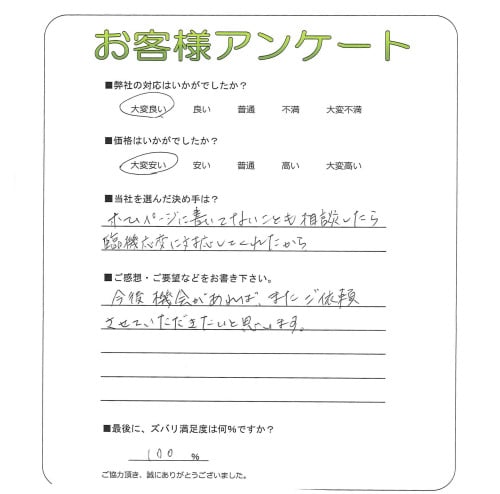 お客様アンケート
■弊社の対応はいかがでしたか？
大変良い　良い　普通　不満　大変不満
■価格はいかがでしたか？
大変安い　安い　普通　高い　大変高い
■当社を選んだ決め手は？
ホームページに書いてないことも相談したら
臨機応変に対応してくれたから
■ご感想・ご要望などをお書き下さい。
今後機会があれば、またご依頼
させていただきたいと思います。
■最後に、ズバリ満足度は何％ですか？
100 ％
ご協力頂き、誠にありがとうございました。